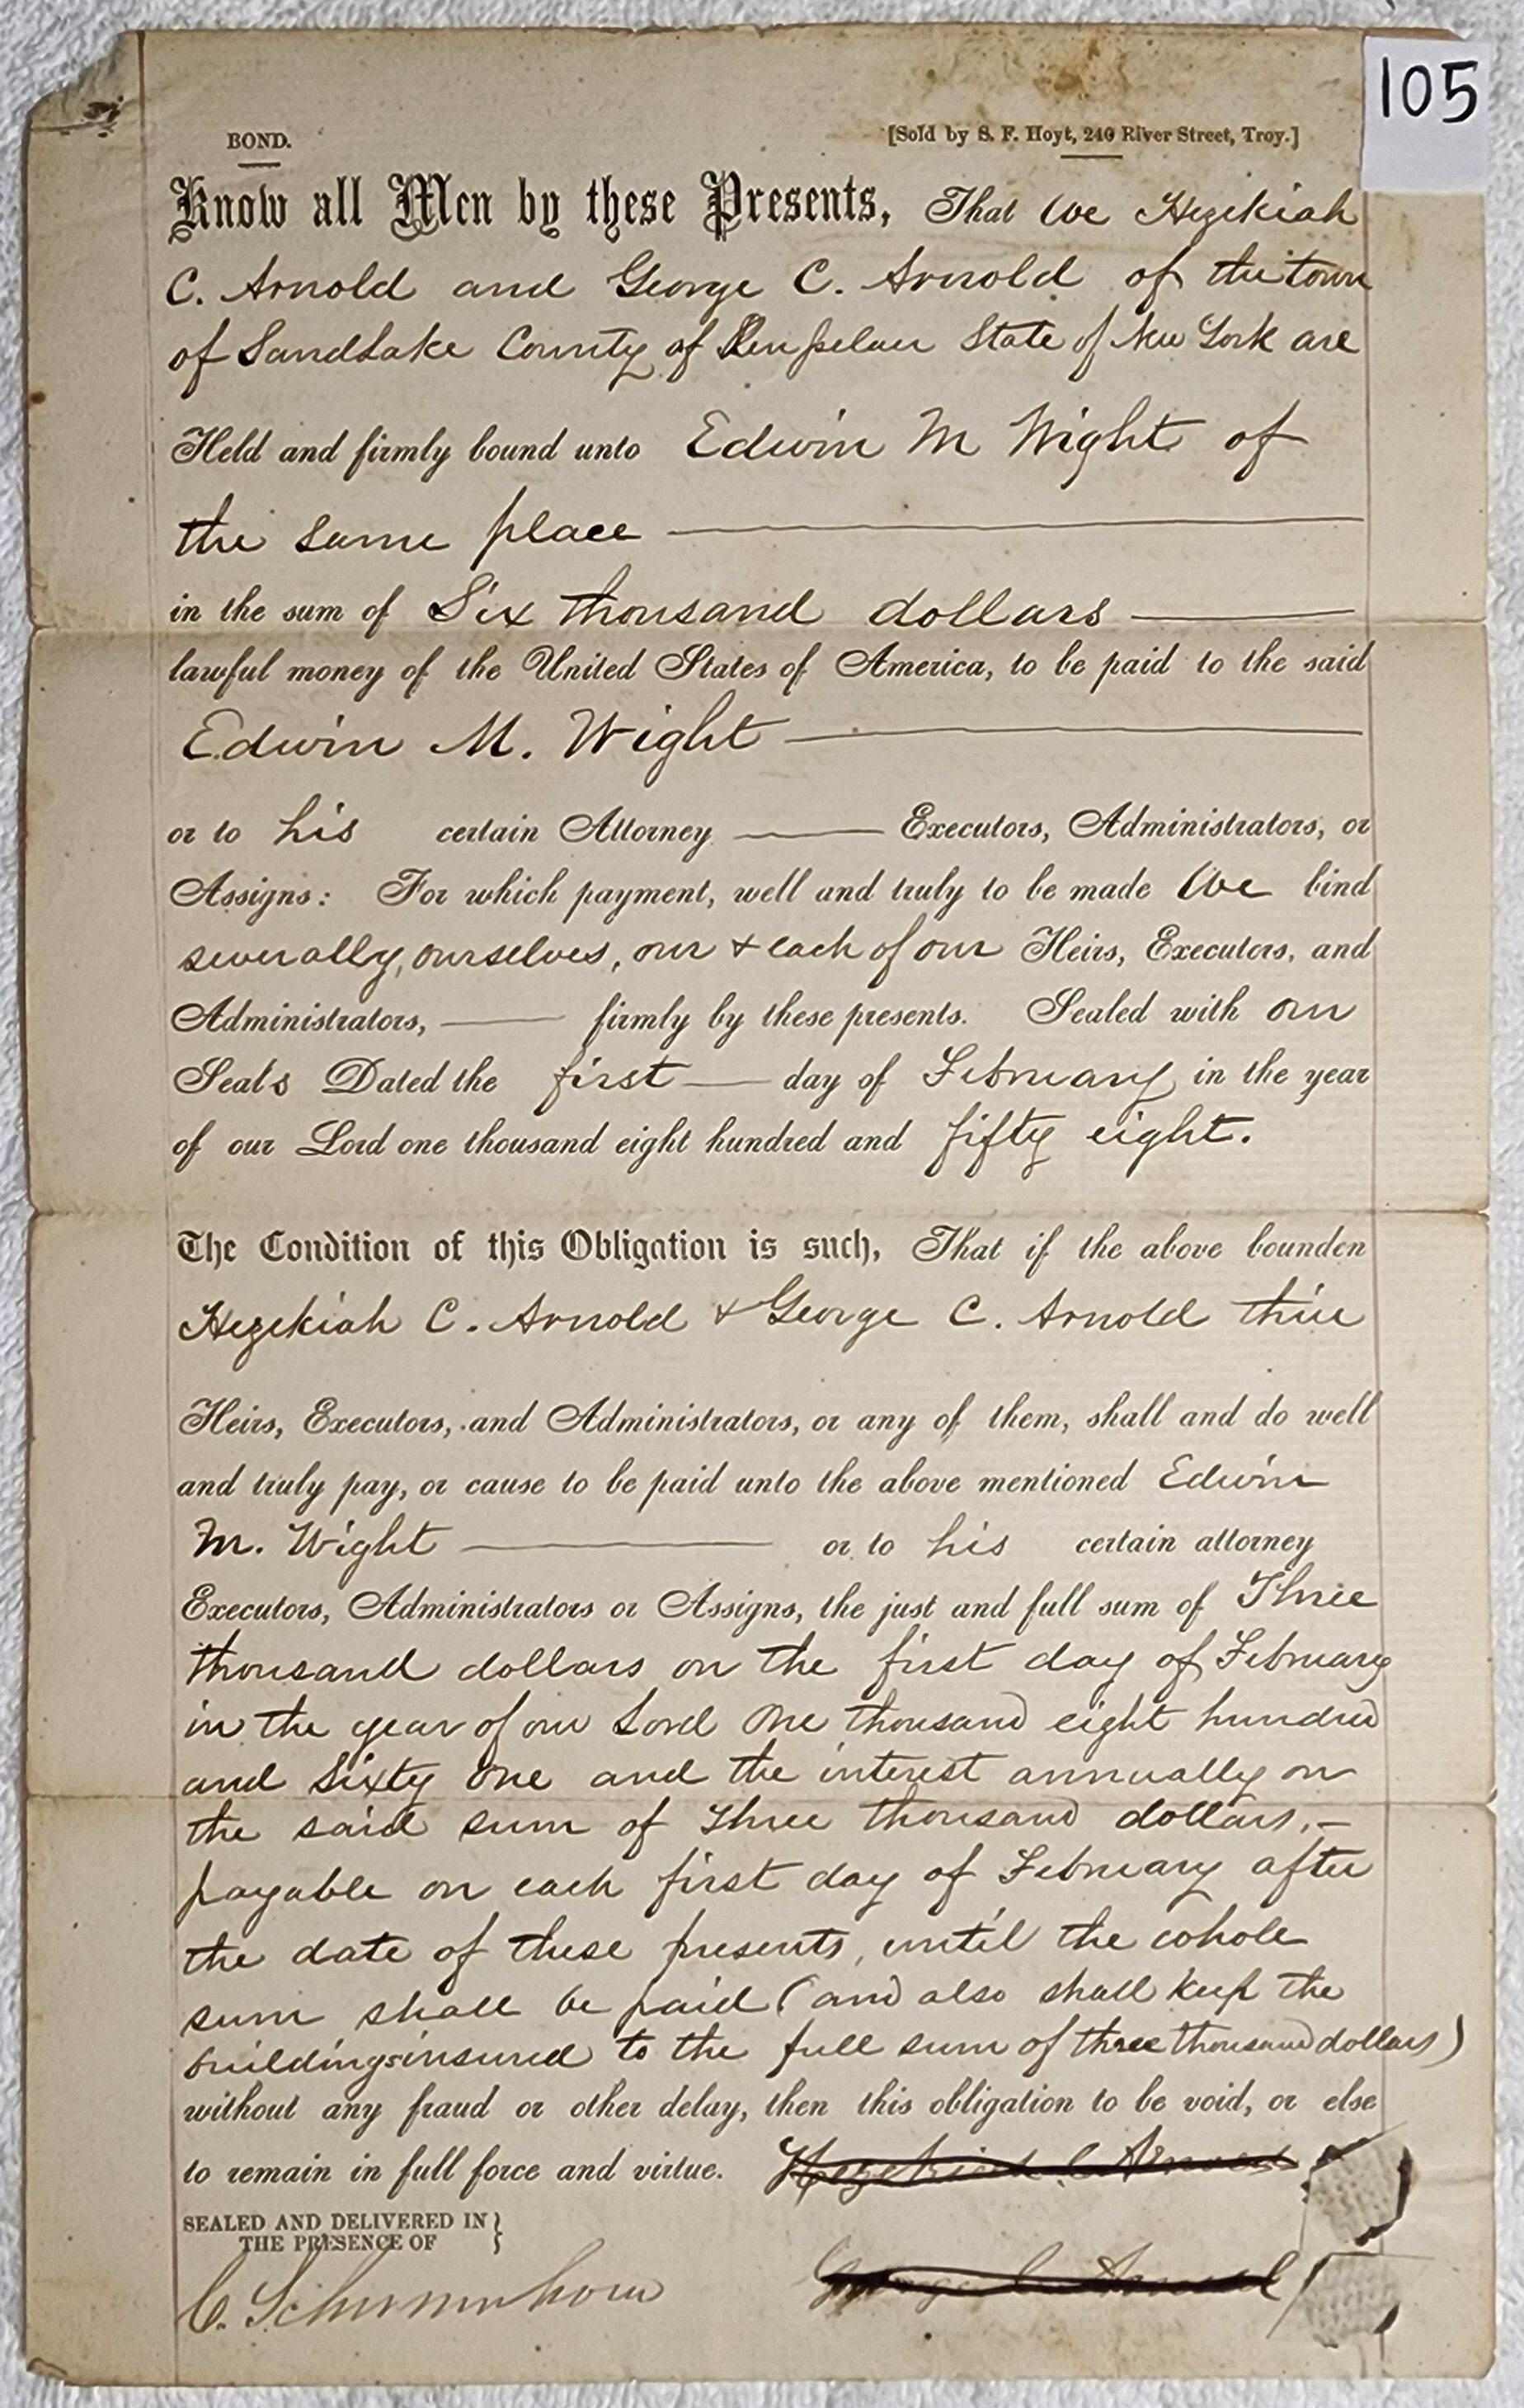 105
BOND.
[Sold by S. F. Hoyt, 240 River Street, Troy.]
Know all Men by these Presents, That We Hezekiah
C. Arnold and George C. Arnold of the town
of Sandlake County of Rensselaer State of New York are
Held and firmly bound unto Edwin M Wight of
the same place
in the sum of Six thousand dollars
lawful money of the United States of America, to be paid to the said
Edwin M. Wight
or to his certain Attorney Executors, Administrators, or
Assigns: For which payment, well and truly to be made We bind
severally, ourselves, our & each of our Heirs, Executors, and
Administrators, firmly by these presents. Sealed with our
Seals Dated the first day of February in the year
of our Lord one thousand eight hundred and fifty eight.
The Condition of this Obligation is such, That if the above bounden
Hezekiah C. Arnold & George C. Arnold thier
Heirs, Executors, and Administrators, or any of them, shall and do well
and truly pay, or cause to be paid unto the above mentioned Edwin
M. Wight or to his certain attorney
Executors, Administrators or Assigns, the just and full sum of Three
thousand dollars on the first day of February
in the year of our Lord One thousand eight hundred
and sixty one and the interest annually on
the said sum of Three thousand dollars,
payable on each first day of February after
the date of these presents, until the whole
sum shall be paid (and also shall keep the
buildings insured to the full sum of three thousand dollars)
without any fraud or other delay, then this obligation to be void, or else
to remain in full force and virtue. Hezekiah C Arnold
SEALED AND DELIVERED IN }
THE PRESENCE OF
George C. Arnold
C. Schermerhorn